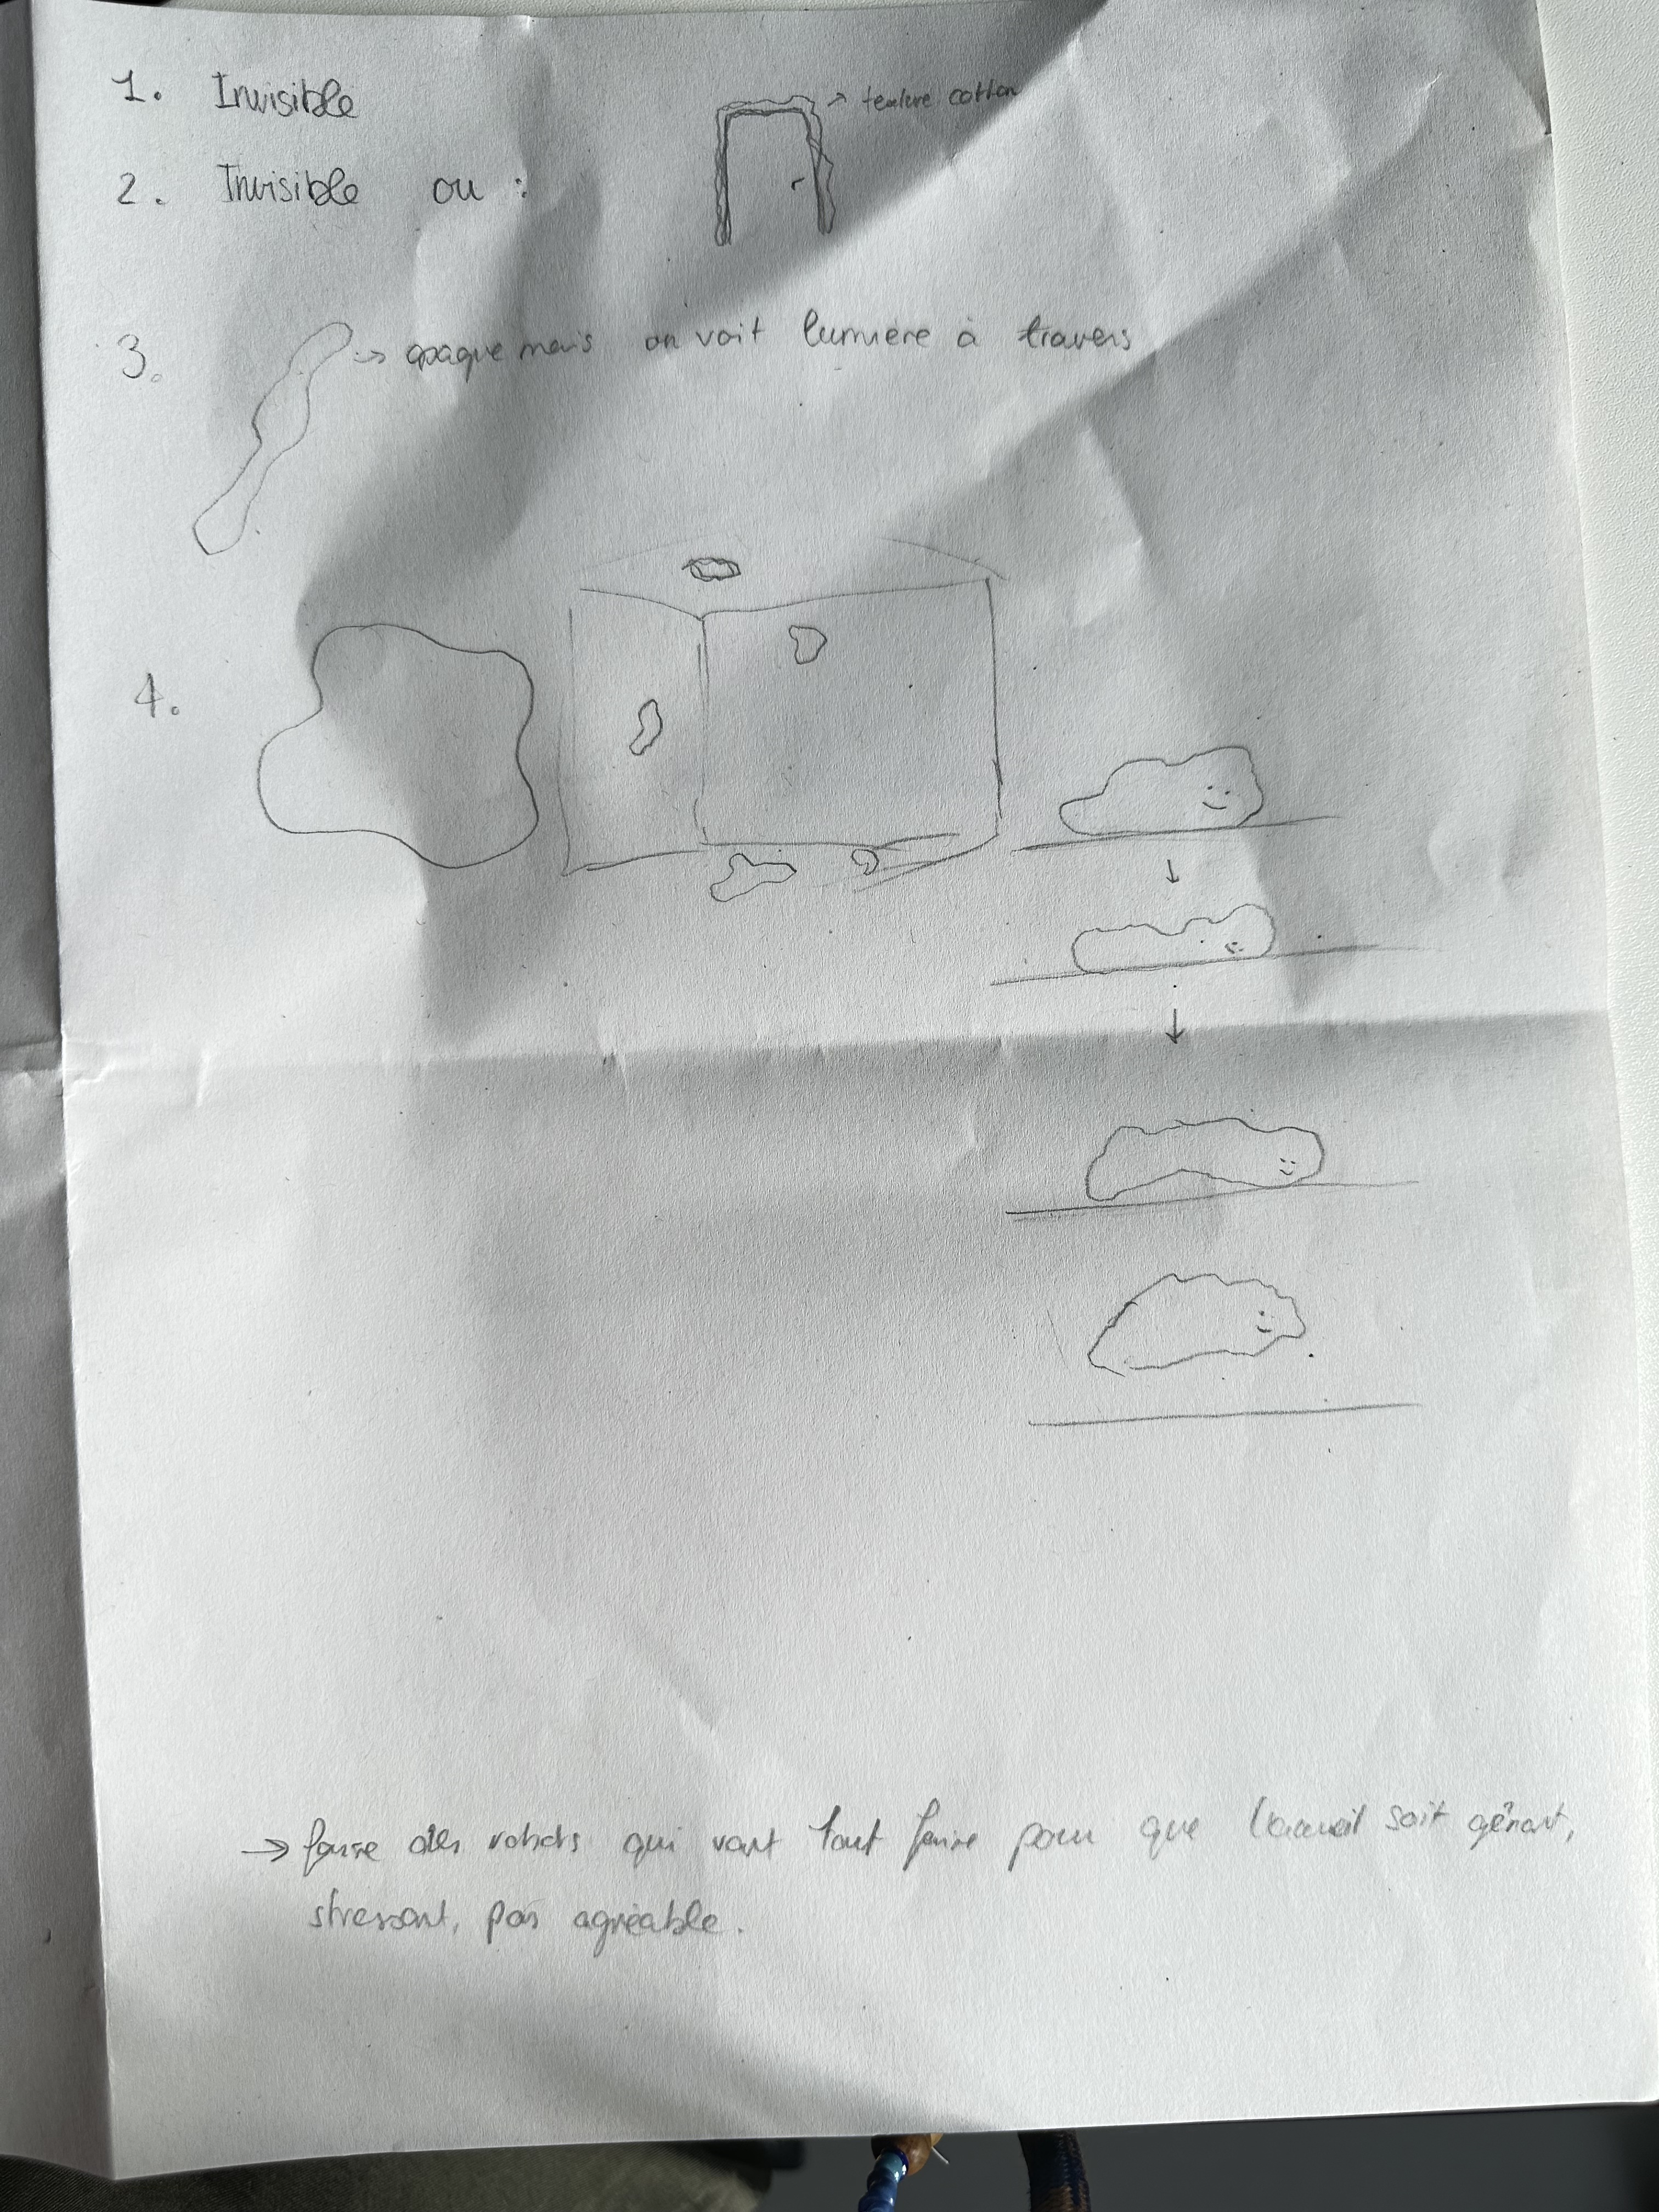 1. Invisible
→ texture cotton
2. Invisible ou :
3. → opaque mais on voit lumière à travers
4.
→ faire des robots qui vont tout faire pour que l'accueil soit gênant,
stressant, pas agréable.